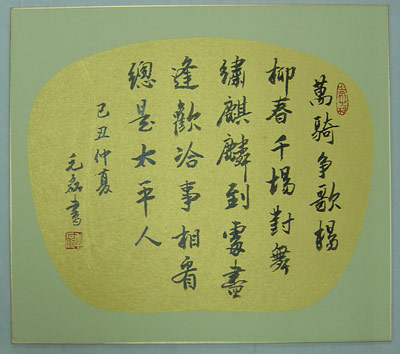 萬騎争歌楊
柳春千場對舞
繡麒麟到處盡
逢歡洽事相看
總是太平人
己丑仲夏
元磊書